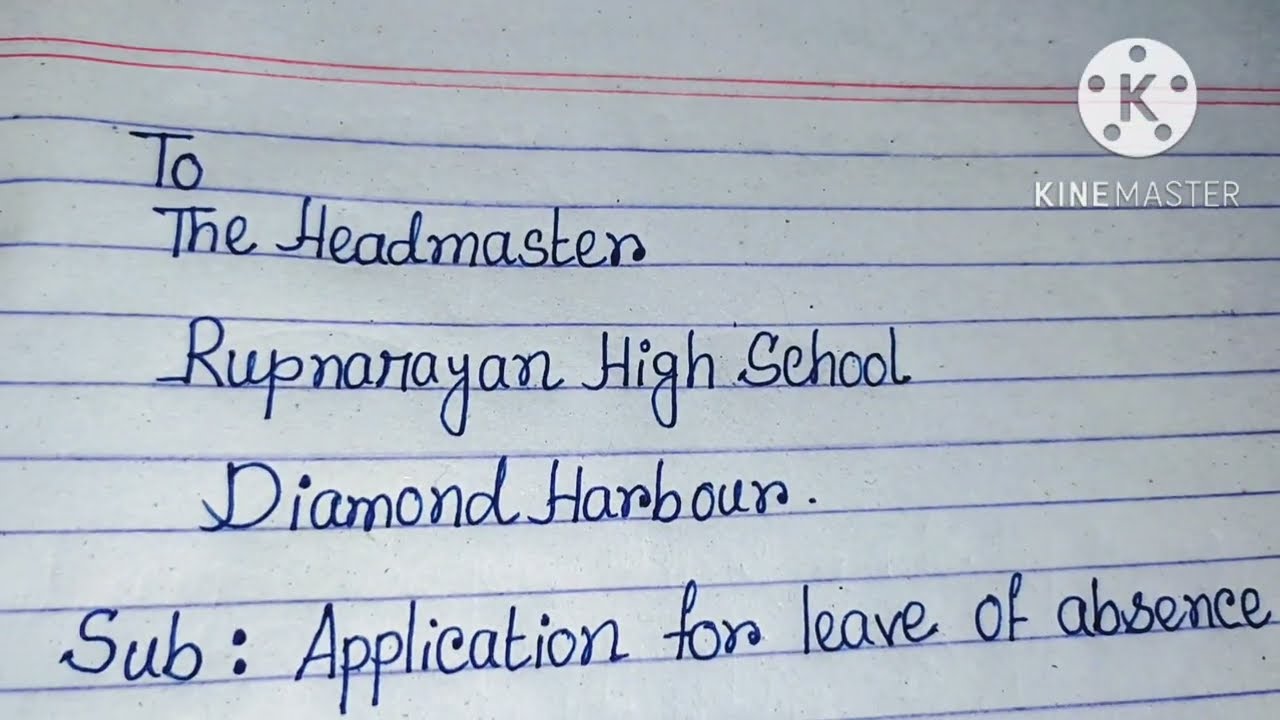 To
The Headmaster
Rupnarayan High School
Diamond Harbour.
Sub: Application for leave of absence
K
KINEMASTER